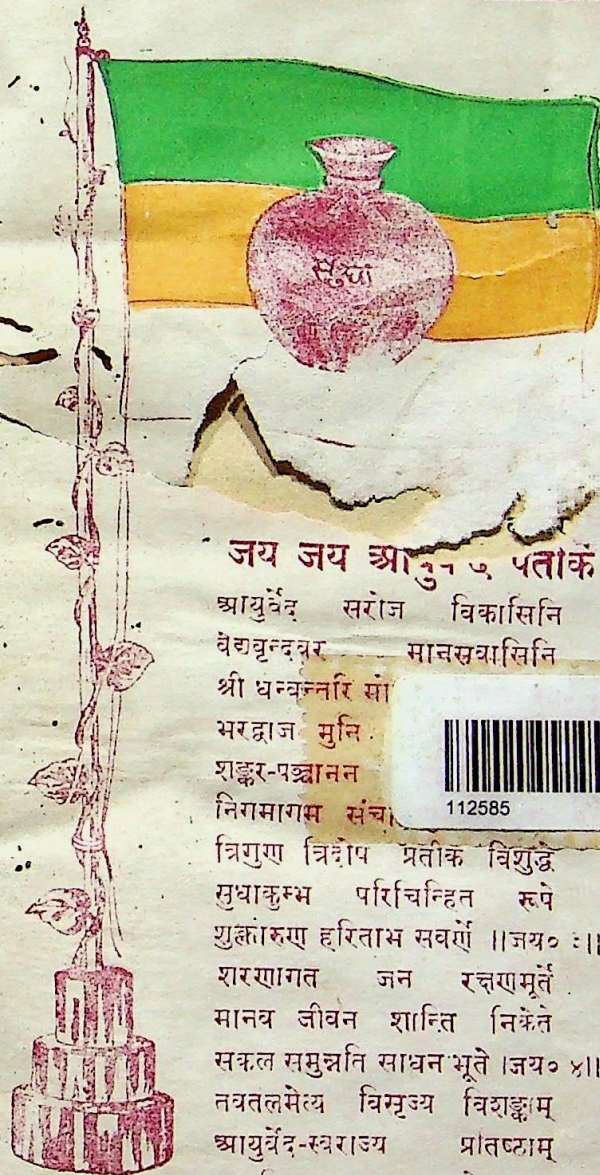 सुधा
जय जय
आयुर्वेद सरोज विकासिनि
वैद्यवृन्दवर मानसवासिनि
श्री धन्वन्तरि
भरद्वाज मुनि
शङ्कर-पञ्चानन
निगमागम
112585
त्रिगुण त्रिदोष प्रतीक विशुद्धे
सुधाकुम्भ परिचिन्हित रूपे
शुक्लारुण हरिताभ सवर्णे ।।जय०
शरणागत जन रक्षणमूर्ते
मानव जीवन शान्ति निकेते
सकल समुन्नति साधन भूते ।जय० ४।।
तवतलमेत्य विसृज्य विशङ्काम्
आयुर्वेद-स्वराज्य प्रतिष्ठाम्